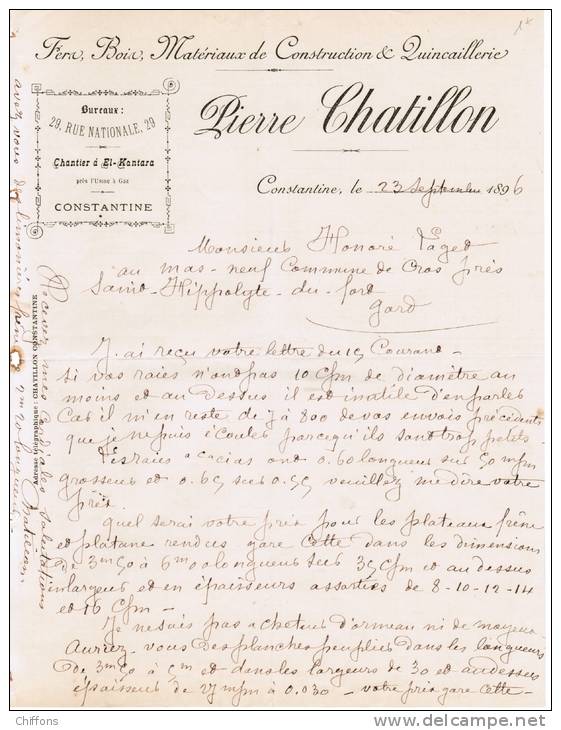 Fers, Bois, Matériaux de Construction & Quincaillerie
Pierre Chatillon
Bureaux :
29, RUE NATIONALE, 29
Chantier à El-Kantara
près l'Usine à Gaz
CONSTANTINE
Constantine, le 23 Septembre 1896
Monsieur Honoré Paget
au mas-neuf Commune de Cros près
Saint-Hippolyte-du-fort
Gard
J'ai reçu votre lettre du 15 Courant-
si vos raies n'ont pas 10 c/m de diamètre au
moins et au dessus il est inutile d'en parler
Car il m'en reste de 7 à 800 de vos envois précédents
que je ne puis écouler parcequ'ils sont trop petits.
Les raies acacias ont 0.60 longueur sur 50 m/m
grosseur et 0.65 sur 0.55 veuillez me dire votre
prix.
quel serait votre prix pour les plateaux frêne
et platane rendus gare Cette dans les dimensions
de 3m50 à 6m00 longueur sur 35 c/m et au dessus
largeur et en épaisseurs assorties de 8-10-12-14
et 16 c/m -
Je ne suis pas acheteur d'ormeau ni de moyeux
Auriez-vous des planches peuplier dans les longueurs
de 3m50 à 5m et dans les largeurs de 30 et au dessus
épaisseur de 27 m/m à 0.030 - votre prix gare Cette -
avez vous des
longueur
Recevez mes Cordiales Salutations
Chatillon
Adresse télégraphique: CHATILLON CONSTANTINE
Chiffons
©Delcampe.net